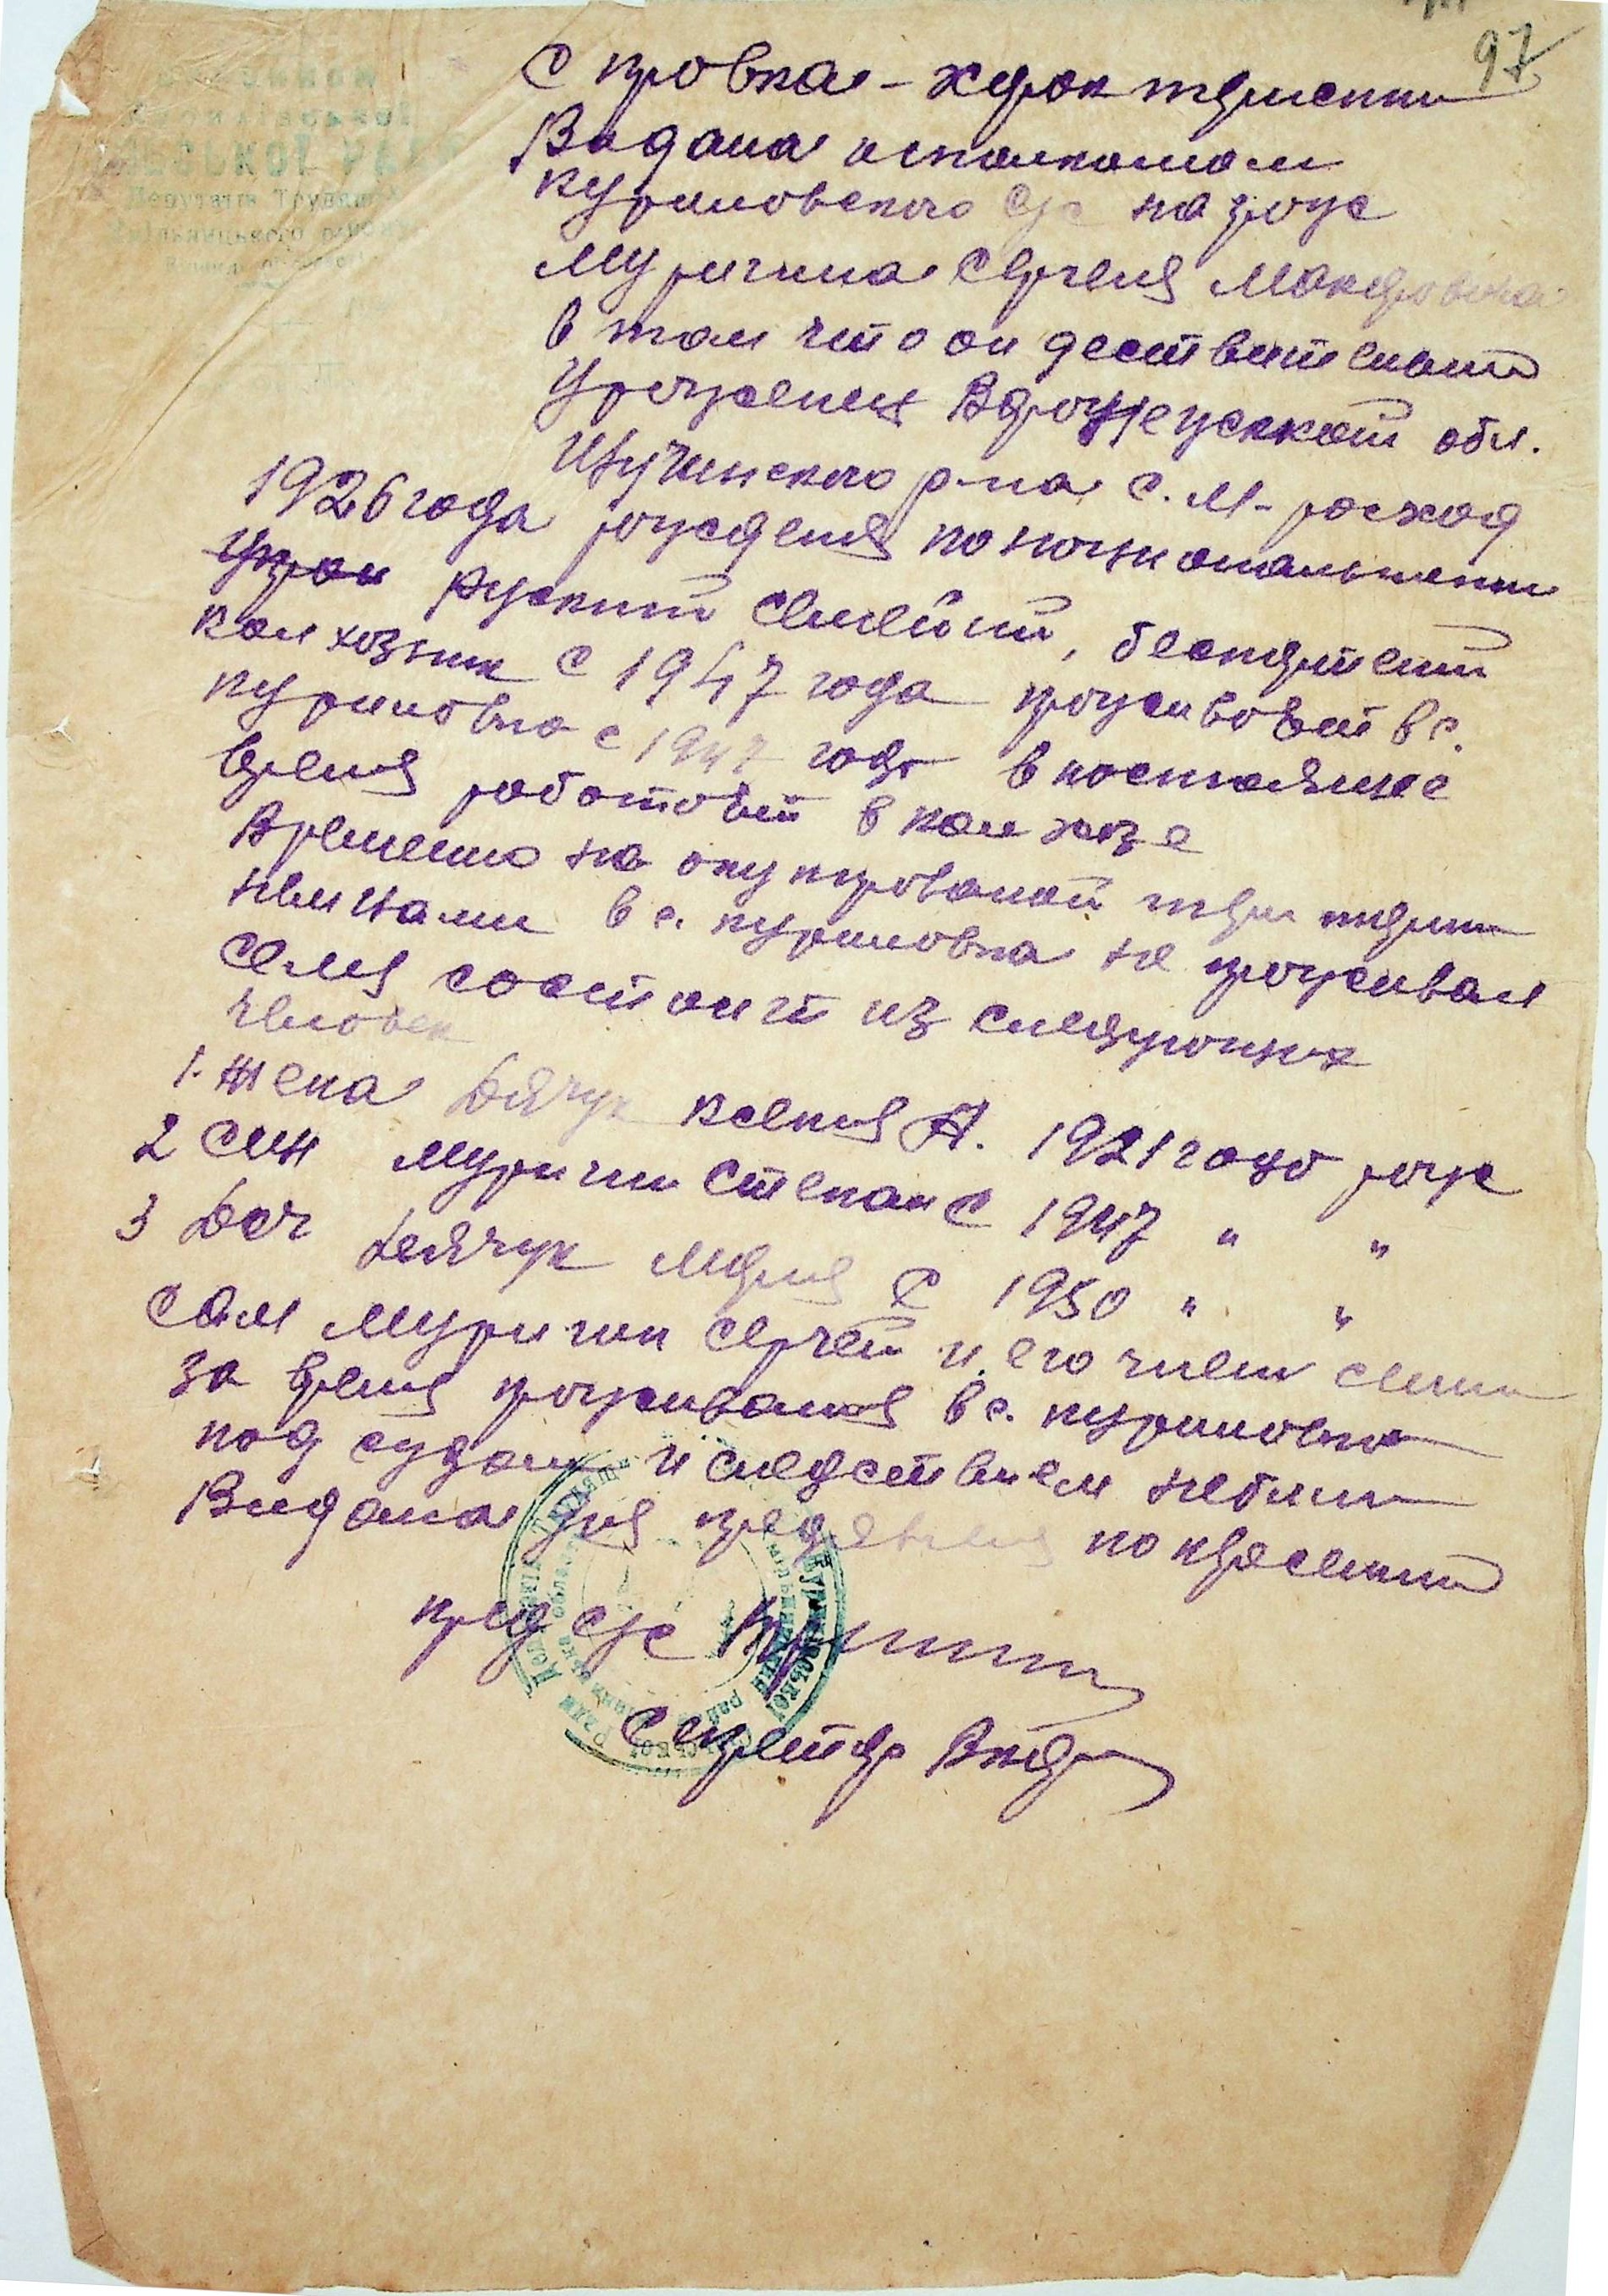 97
Справка-характеристика
Видана исполкомом
Куриловского с/с на гр-на
Муригина Сергея
в том что он действительно
Уроженец Воронежской обл.
Щучинского р-на с. М-
1926 года рождения по национальности
руский семейний, беспартийний
колхозник с 1947 года проживает в с.
Куриловка с 1947 года в настоящее
время работает в колхозе
Временно на окупированой територии
немцами в с. Куриловка не проживал
Семя состоит из следующих
человек
1. жена Дячук Ксения А. 1921 года рож
2 син Муригин Степан С 1947 " "
3 Доч Дячук Мария С 1950 " "
Сам Муригин Сергей и его члени семи
за время проживания в с. Куриловка
под судом и следствием не били
Видана для предявления
пред с/с
Секретар